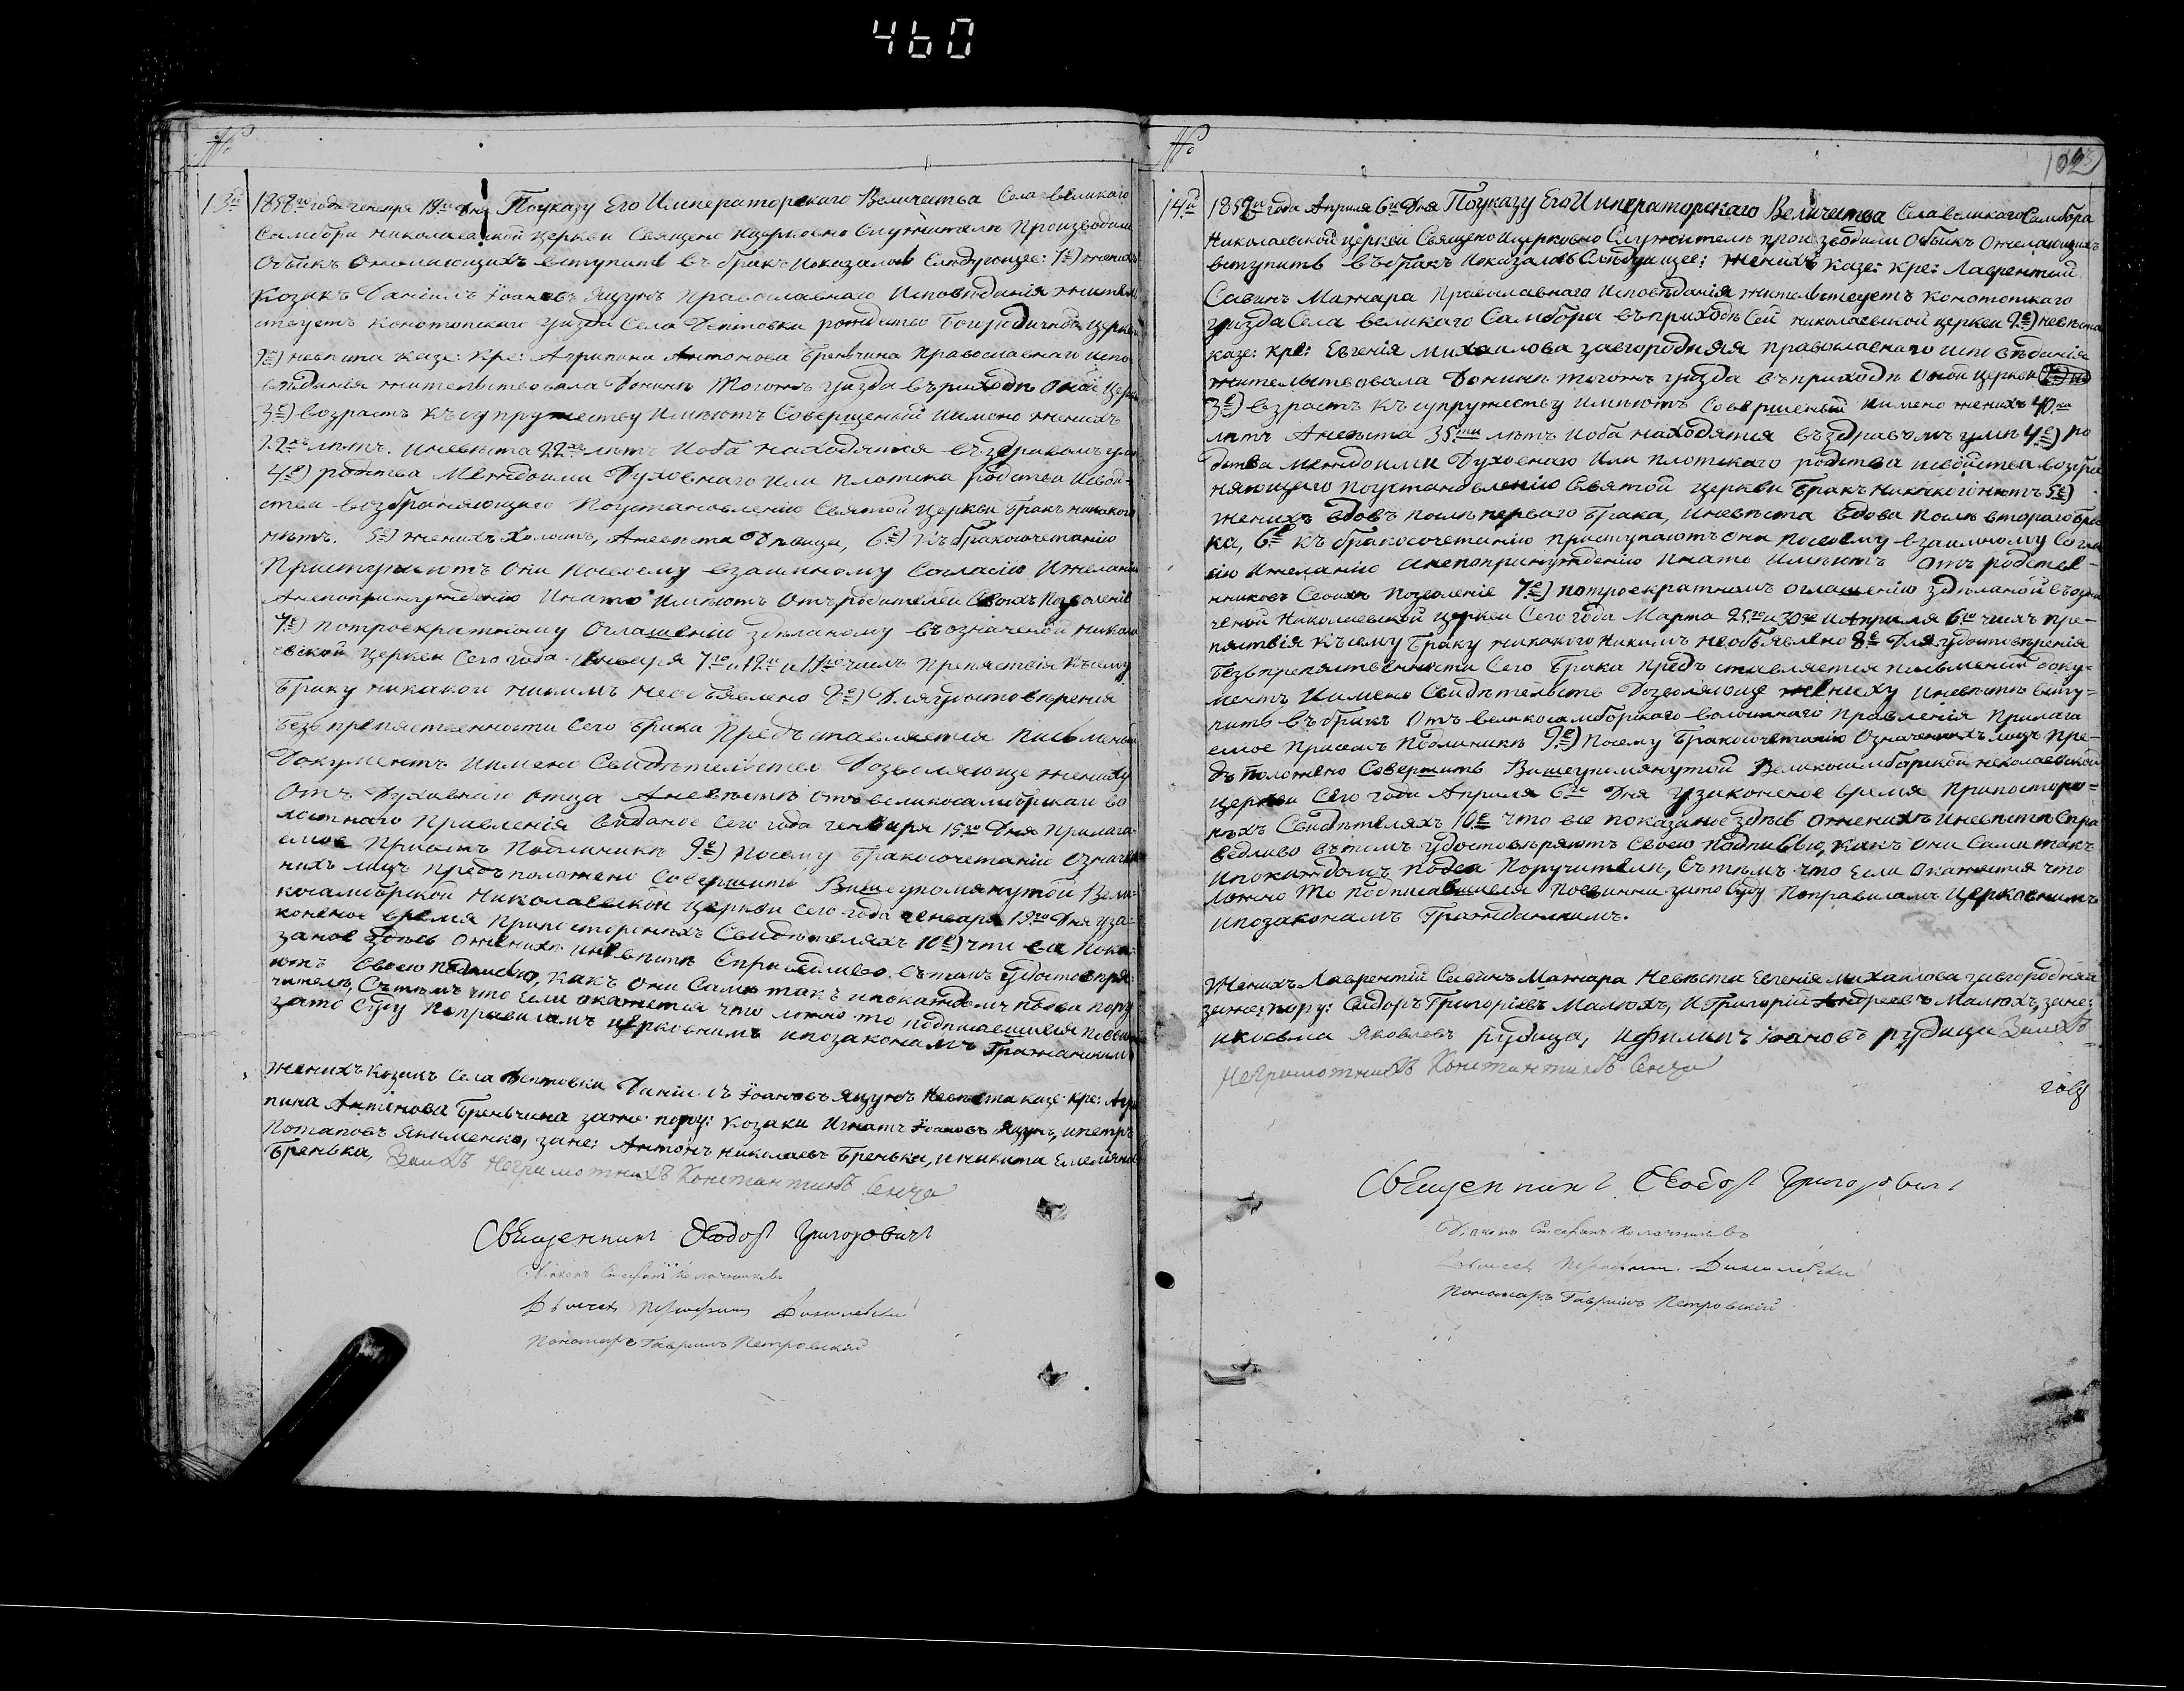 460
№
13й 1858го года генваря 19го дня По указу Его Императорскаго Величества Села великого
Самбора николаевской церкви Священо Ицерковно Служители Производили
Обыскъ Ожелающихъ вступить въ бракъ Иоказалось Следующее: 1е) женихъ
Козакъ Даніилъ Іоановъ Яцунъ Православнаго Исповѣданія жител
ствуетъ конотопскаго уѣзда Села Дептовки рождество Богородичной церкви
2е) невѣста казе: кре: Агрипина Антонова Бреньчина Православнаго испо
вѣданія жительствовала Донинѣ Тогожъ уѣзда въприходѣ оной церк
3е) возрастъ къ супружеству Имѣютъ Совершенный Имено женихъ
22хъ лѣтъ. Иневѣста 22хъ лѣтъ Иоба находятся въздравомъ ум
4е) родства Междоими Духовнаго Или плотска родства Исвой-
ства возбраняющаго Поустановленію Святой Церкви Бракъ никакого
нѣтъ. 5е) женихъ Холостъ, Аневѣста Дѣвица, 6е) Къ бракосочетанію
Приступаютъ Они посвоему взаимному Согласію Ижеланію
Анепопринужденію Инато Имѣютъ Отъ родителей Своихъ Позволеніе
7е) потроекратному Оглашенію здѣланому въозначеной никола
евской церкви Сего года генваря 7го и 12го и 17го числъ Препятствія Къ сему
Браку никакого никимъ необъявлено 8е) Для удостовѣренія
Безъ препятственности Сего Брака Предъставляется Письменый
Документъ Имено Свидѣтелство Дозволяюще жениху
Отъ Духовнаго отца Аневѣсте отъ великосамборскаго во
лостнаго Правленія виданое Сего года генваря 15го Дня прилага-
емое присемъ Подлиникѣ 9е) посему Бракосочетаніе Означе
нихъ лицъ предъположено Совершить Вишеупомянутой Вели-
косамборской Николаевской Церкви Сего года генваря 19го Дня уза-
коненое время Припостороннихъ Свидѣтеляхъ 10е) что вса пока-
заное здесь ожених иневѣсте Справедливо. въ томъ удостовѣря-
ютъ Своею подписью, какъ они Сами такъ ипокаждомъподва пору
чители, Съ тѣмъ что Если окажется что ложно то подписавшися повин
зато Суду По правиламъ церковнимъ ипозаконамъ Гражданским
женихъ козакъ Села дептовки Даніилъ Іоановъ яцунъ Невѣста казе: кре: Агри
пина Антонова Бреньчина зажен: пору: козаки Игнатъ Іоановъ Яцунъ, ипетръ
Потаповъ якименко, зане: Антонъ николаевъ Бренька, иникита Емелянов
Бренька, Заихъ неграмотнихъ Константинъ Сенча
Священникъ Феодоръ Григоровичъ
Діаконъ Стефанъ Колачников
Пономаръ Гавриилъ Петровскій
№
102
14й 1859го года Апреля 6го Дня По указу Его Императорскаго Величества Села великаго Самбора
Николаевской церкви Священо Ицерковно Служители произзводили Обыскъ Ожелающихъ
вступить въ бракъ Иоказалось Слѣдующее: женихъ казе: кре: Лаврентий
Савинъ Мажара Православнаго Исповѣданія жительствуетъ конотопскаго
уѣзда Села великаго Самбора въприходѣ Сей николаевской церкви 2е) невѣста
казе: кре: Евгенія Михаилова завгородняя православнаго исповѣданія
жительствовала Донинѣ тогожъ уѣзда въприходѣ оной церкви
3е) взрастъ къ супружеству имѣютъ Совершеный Имено женихъ 40ка
лѣтъ Аневѣста 35ти лѣтъ Иоба находятся въздравомъ умѣ 4е) ро
дства междоими Духовнаго Или плотскаго родства исвойства возбра
няющаго поустановленію Святой церкви Бракъ никакого нѣтъ 5е)
женихъ вдовъ послѣ перваго Брака, Иневѣста вдова послѣ втораго бра
ка, 6е къ бракосочетанію приступаютъ они посвоему взаимному Согла
сію Ижеланію Анепопринужденію Инато Имѣютъ Отъ родстве-
нниковъ Своихъ позволеніе 7е) потроекратномъ оглашенію здѣланой въозна
ченой Николаевской церкви Сего года Марта 25го и 30го и Апреля 6го числъ пре-
пятствія къ сему Браку никакого Никимъ необъявлено 8е Для удостовѣренія
Безъпрепятственности Сего Брака предъставляется писменый доку-
ментъ Имено Свидѣтельствъ Дозволяюще жениху иневѣстѣ всту-
пить въ бракъ Отъ великосамборскаго волостнаго Правленія Прилага
емое присемъ Подлиникѣ 9е) Посему Бракосочетаніе Означенихъ лицъ пре-
дъположено Совершить Вишеупомянутой Великосамборской николаевской
церкви Сего года Апреля 6го Дня узаконеное время Припосторо-
нихъ Свидѣтеляхъ 10е что все показаное здѣсь ожених Иневѣсте Спра
ведливо вътомъ удостовѣряютъ Своею подписью, какъ они Сами такъ
ипокаждомъ подва Поручители, Съ тѣмъ что Если окажется что
ложно то подписавшися повинни зато Суду Поправиламъ Церковнимъ
ипозаконамъ Гражданскимъ.
Женихъ Лаврентій Савинъ Мажара Невѣста Евгенія михаилова завгородняя
зажен: пору: Сидоръ Григоріевъ Малюхъ, И Григорій Андреевъ Малюхъ, зане:
икосьма Яковлевъ рудица, ифилипъ Іоановъ рудица Заихъ
Неграмотнихъ Константинъ Сенча
Священникъ Феодоръ Григоровичъ
Діаконъ Стефанъ Колачников
Пономаръ Гавриилъ Петровскій